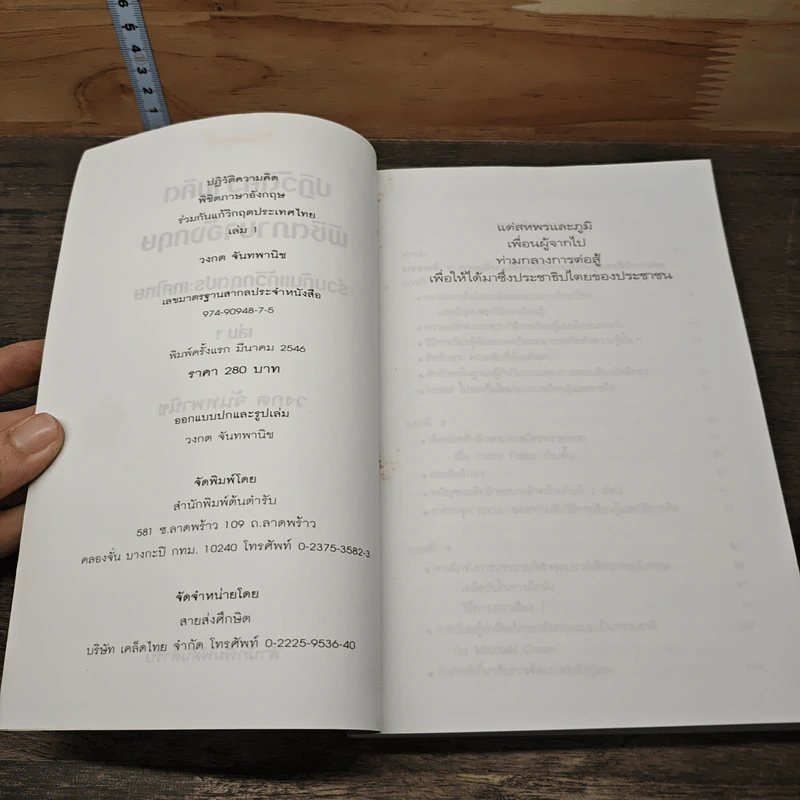 5
4
3
2
1
ปฏิวัติความคิด
พิชิตภาษาอังกฤษ
ร่วมกันแก้วิกฤตประเทศไทย
เล่ม 1
วงกต จันทพานิช
เลขมาตรฐานสากลประจำหนังสือ
974-90948-7-5
พิมพ์ครั้งแรก มีนาคม 2546
ราคา 280 บาท
ออกแบบปกและรูปเล่ม
วงกต จันทพานิช
จัดพิมพ์โดย
สำนักพิมพ์ต้นตำรับ
581 ซ.ลาดพร้าว 109 ถ.ลาดพร้าว
คลองจั่น บางกะปิ กทม. 10240 โทรศัพท์ 0-2375-3582-3
จัดจำหน่ายโดย
สายส่งศึกษิต
บริษัท เคล็ดไทย จำกัด โทรศัพท์ 0-2225-9536-40
แด่สหพรและภูมิ
เพื่อนผู้จากไป
ท่ามกลางการต่อสู้
เพื่อให้ได้มาซึ่งประชาธิปไตยของประชาชน